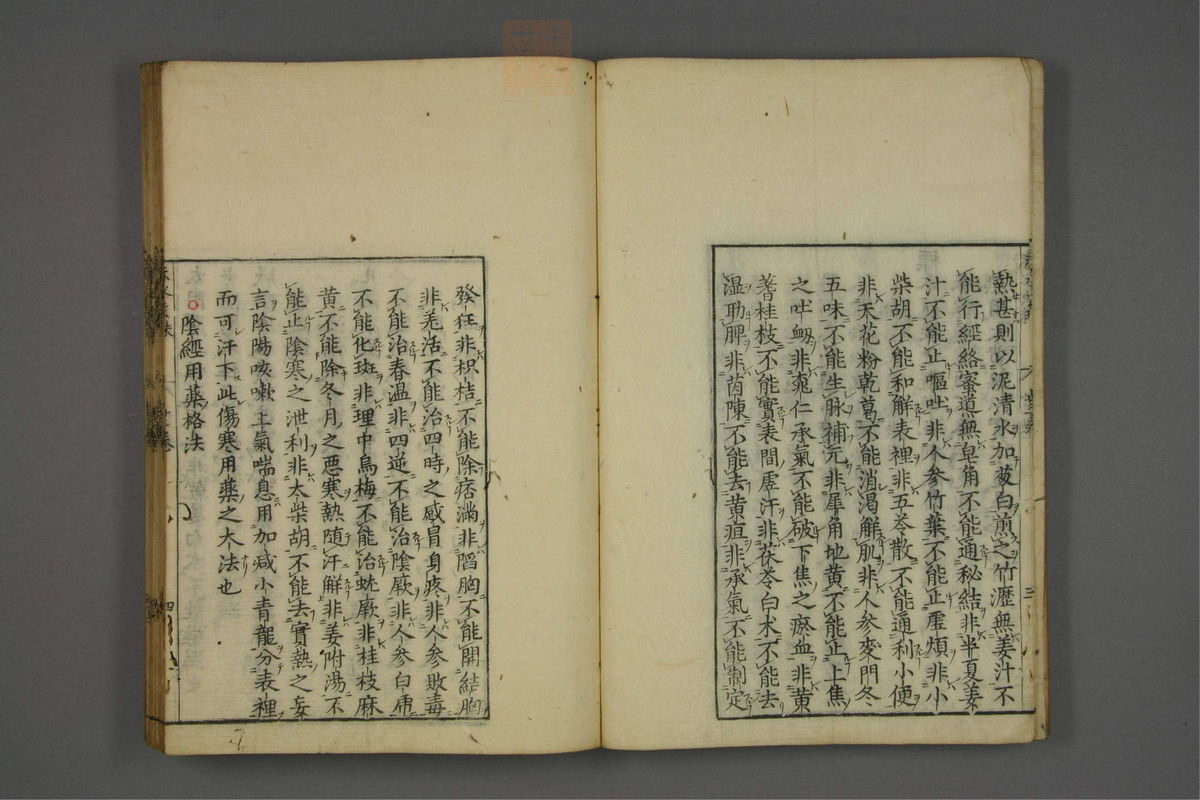 熱甚則以泥清水加葱白煎之竹瀝無姜汁不
能行經絡蜜導無皂角不能通秘結非半夏姜
汁不能止嘔吐非人參竹葉不能止虛煩非小
柴胡不能和解表裡非五苓散不能通利小便
非天花粉乾葛不能消渴解肌非人參麥門冬
五味不能生脉補元非犀角地黃不能止上焦
之吐衂非桃仁承氣不能破下焦之瘀血非黃
芪桂枝不能實表間虛汗非茯苓白朮不能去
湿助脾非茵陳不能去黃疸非承氣不能制定
發狂非枳桔不能除痞滿非陷胸不能開結胸
非羌活不能治四時之感冒身疼非人參敗毒
不能治春温非四逆不能治陰厥非人參白虎
不能化斑非理中烏梅不能治蚘厥非桂枝麻
黃不能除冬月之惡寒熱随汗解非姜附湯不
能止陰寒之泄利非大柴胡不能去實熱之妄
言陰陽咳嗽上氣喘息用加减小青龍分表裡
而可汗下此傷寒用藥之大法也
陰經用藥格法